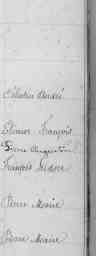 Célestin André
François
Pierre Augustin
François Isidore
Pierre Marie
Pierre Marie